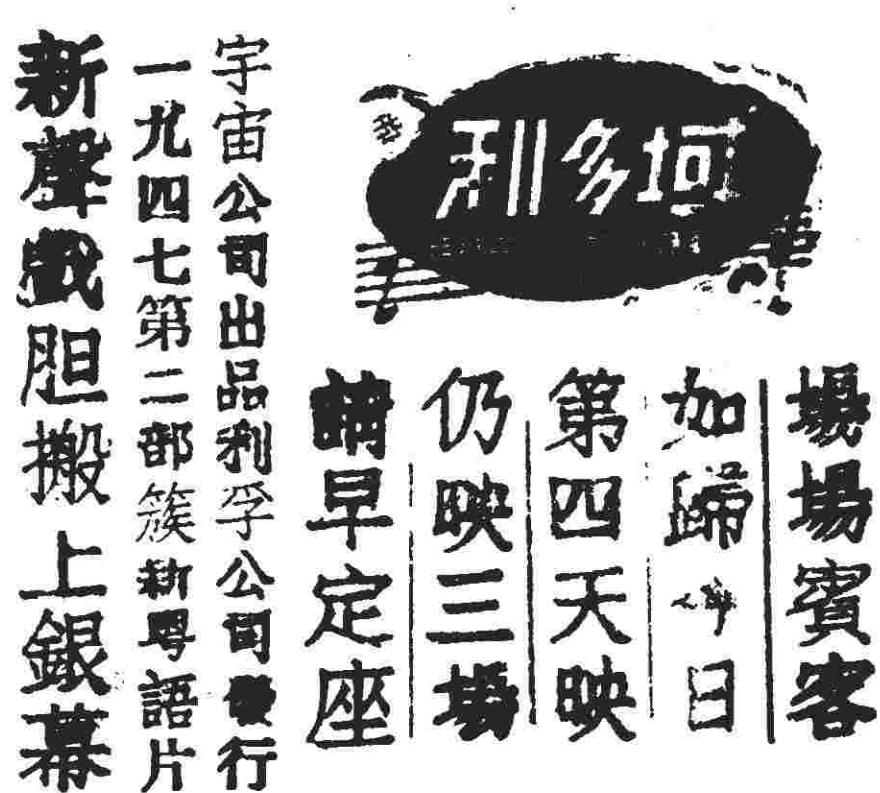 利多坷
場場賓客
如歸今日
第四天映
仍映三場
請早定座
宇宙公司出品利孚公司發行
一九四七第二部簇新粵語片
新聲戲胆搬上銀幕